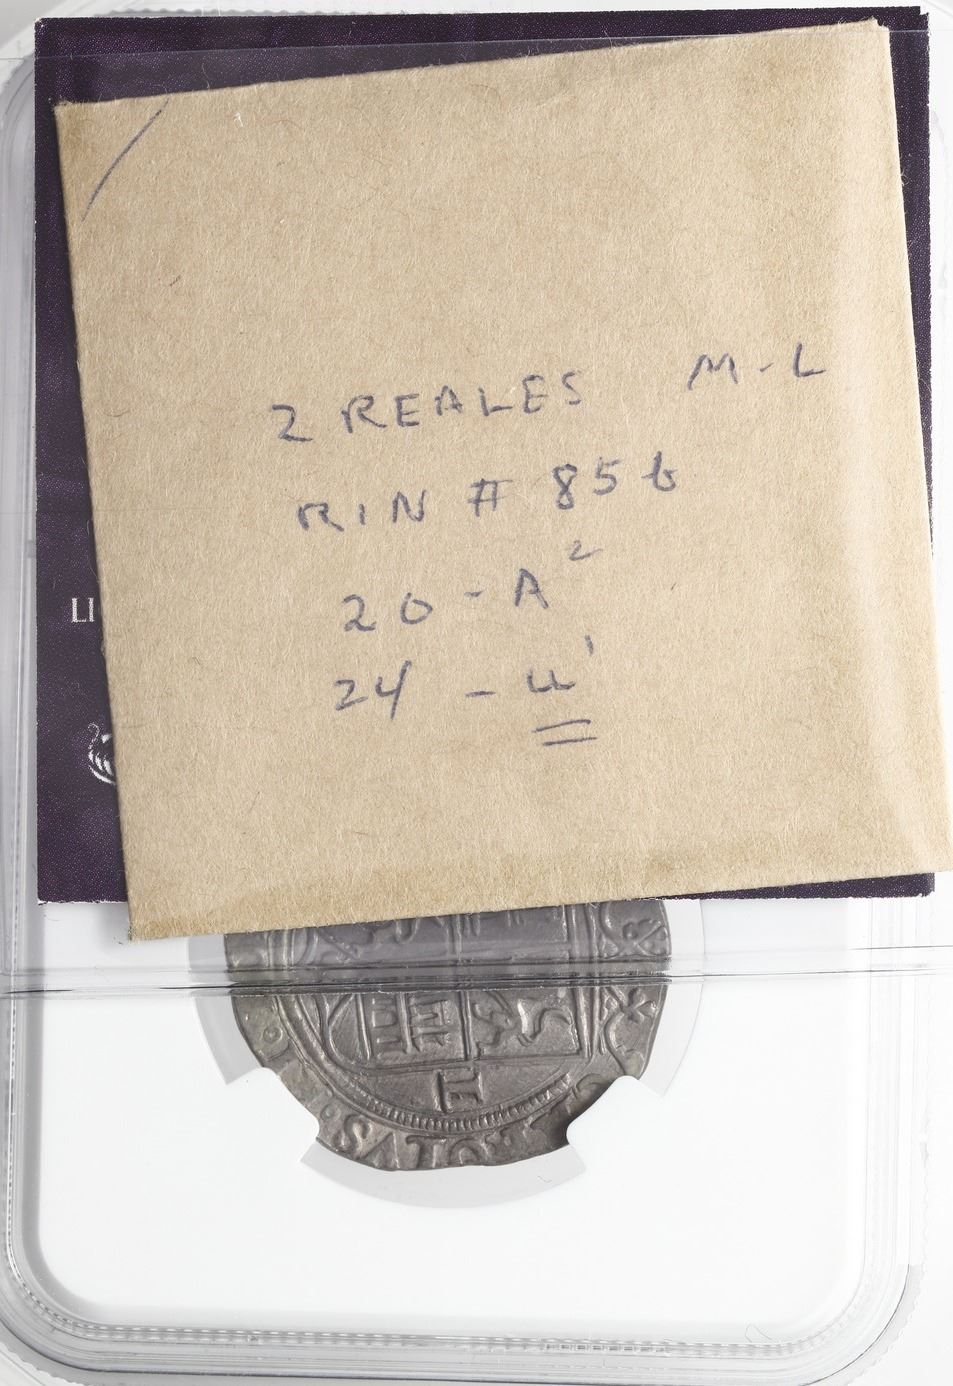 2 REALES M-L
RIN # 85b
20 - A²
24 - u'
LI
II